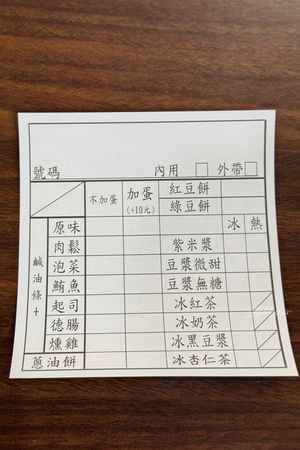 號碼 內用 □ 外帶 □
不加蛋 加蛋 (+10元) 紅豆餅
綠豆餅
鹹油條+
原味 冰 熱
肉鬆 紫米漿
泡菜 豆漿微甜
鮪魚 豆漿無糖
起司 冰紅茶
德腸 冰奶茶
燻雞 冰黑豆漿
蔥油餅 冰杏仁茶